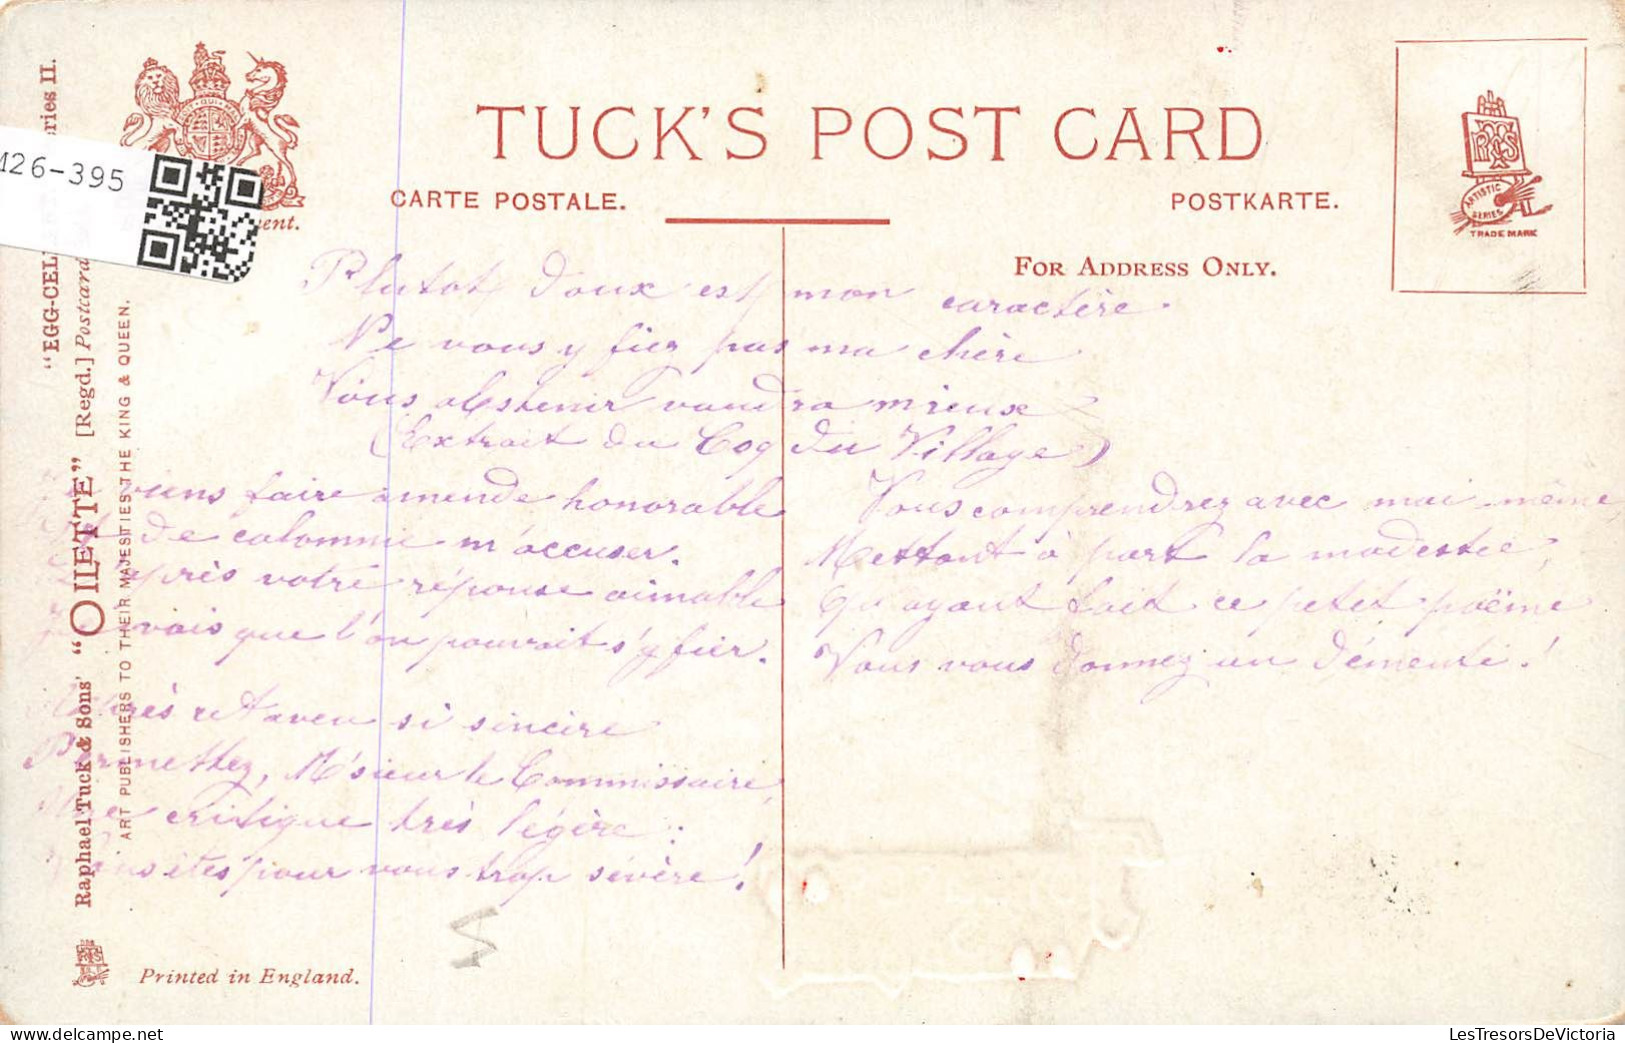 TUCK'S POST CARD
CARTE POSTALE.
POSTKARTE.
FOR ADDRESS ONLY.
TRADE MARK
ARTISTIC SERIES
126-395
ent.
"EGG-CEL
ries II.
Raphael Tuck & Sons' "OILETTE" [Regd.] Postcard
ART PUBLISHERS TO THEIR MAJESTIES THE KING & QUEEN.
Plutot doux est mon caractère.
Ne vous y fiez pas ma chère
Vous abstenir vaudra mieux
(Extrait du Coq du Village)
viens faire amende honorable
de calomnie m'accuser.
D'après votre réponse aimable
vois que l'on pouvait s'y fier.
Après cet aveu si sincère
Permettez, M'sieur le Commissaire,
Une critique très légère :
Vous êtes pour vous trop sévère !
Vous comprendrez avec moi-même,
Mettant à part la modestie,
Qu'ayant fait ce petit poëme
Vous vous donnez un démenti !
Printed in England.
LesTresorsDeVictoria
delcampe.net